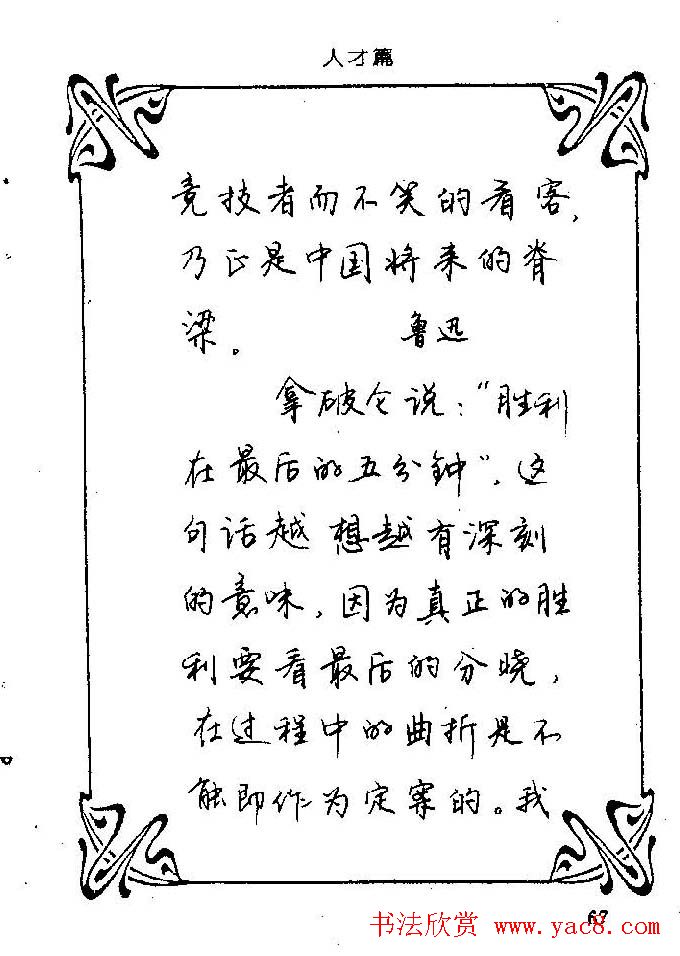 人才篇
竞技者而不笑的看客，
乃正是中国将来的脊
梁。 鲁迅
拿破仑说：“胜利
在最后的五分钟”，这
句话越想越有深刻
的意味，因为真正的胜
利要看最后的分晓，
在过程中的曲折是不
能即作为定案的。我
67
书法欣赏 www.yac8.com